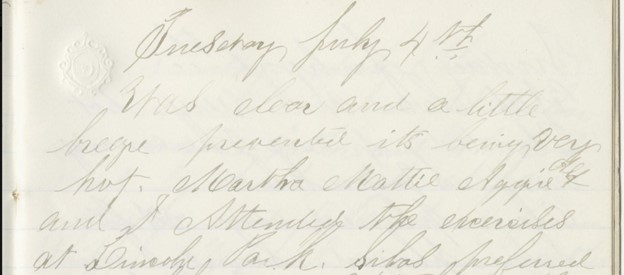 Tuesday July 4th
Was clear and a little
breeze prevented its being very
hot. Martha Mattie Aggie
and I Attended the exercises
at Lincoln Park. Silas preferred